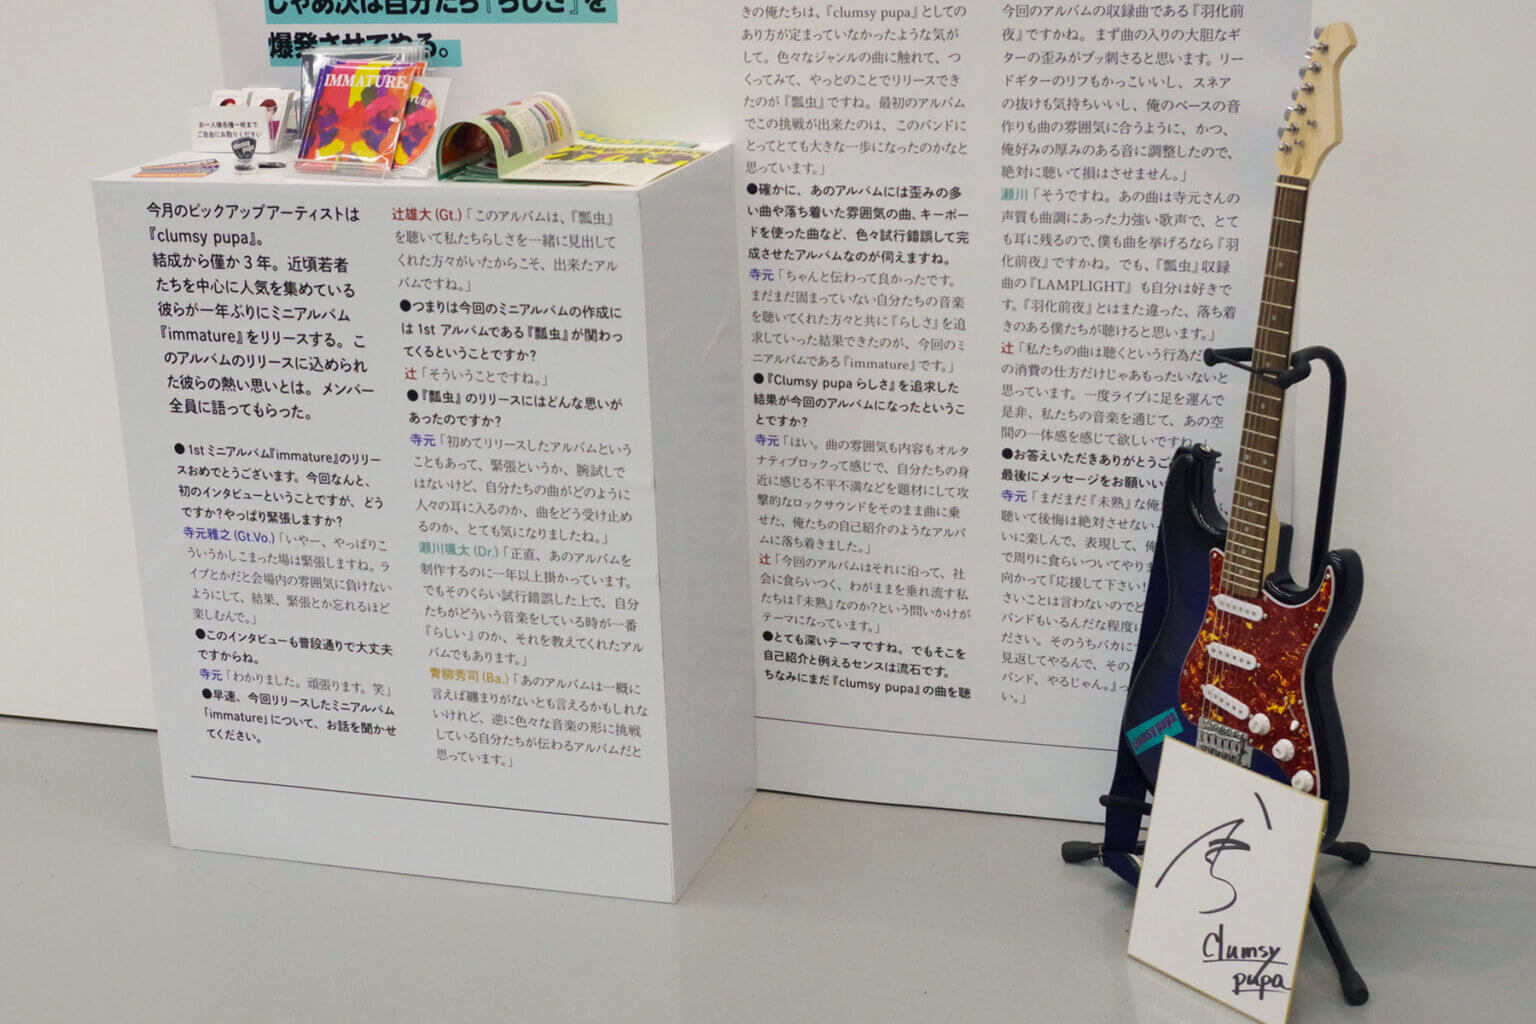 じゃあ次は自分たち『らしさ』を
爆発させてやる。
IMMATURE
お一人様各種一枚まで
ご自由にお取りください
今月のピックアップアーティストは
『clumsy pupa』。
結成から僅か 3 年。近頃若者
たちを中心に人気を集めている
彼らが一年ぶりにミニアルバム
『immature』をリリースする。こ
のアルバムのリリースに込められ
た彼らの熱い思いとは。メンバー
全員に語ってもらった。
●1stミニアルバム『immature』のリリー
スおめでとうございます。今回なんと、
初のインタビューということですが、どう
ですか?やっぱり緊張しますか?
寺元雅之(Gt.Vo.)「いやー、やっぱりこ
ういうかしこまった場は緊張しますね。ラ
イブとかだと会場内の雰囲気に負けない
ようにして、結果、緊張とか忘れるほど
楽しむんで。」
●このインタビューも普段通りで大丈夫
ですからね。
寺元「わかりました。頑張ります。笑」
●早速、今回リリースしたミニアルバム
「immature」について、お話を聞かせ
てください。
辻雄大(Gt.)「このアルバムは、『瓢虫』
を聴いて私たちらしさを一緒に見出して
くれた方々がいたからこそ、出来たアル
バムですね。」
●つまりは今回のミニアルバムの作成に
は 1st アルバムである『瓢虫』が関わっ
てくるということですか?
辻「そういうことですね。」
●『瓢虫』のリリースにはどんな思いが
あったのですか?
寺元「初めてリリースしたアルバムという
こともあって、緊張というか、腕試しで
はないけど、自分たちの曲がどのように
人々の耳に入るのか、曲をどう受け止め
るのか、とても気になりましたね。」
瀬川颯太(Dr.)「正直、あのアルバムを
制作するのに一年以上掛かっています。
でもそのくらい試行錯誤した上で、自分
たちがどういう音楽をしている時が一番
『らしい』のか、それを教えてくれたアル
バムでもあります。」
青柳秀司(Ba.)「あのアルバムは一概に
言えば纏まりがないとも言えるかもしれな
いけれど、逆に色々な音楽の形に挑戦
している自分たちが伝わるアルバムだと
思っています。」
きの俺たちは、『clumsy pupa』としての
あり方が定まっていなかったような気が
して。色々なジャンルの曲に触れて、つ
くってみて、やっとのことでリリースでき
たのが『瓢虫』ですね。最初のアルバム
でこの挑戦が出来たのは、このバンドに
とってとても大きな一歩になったのかなと
思っています。」
●確かに、あのアルバムには歪みの多
い曲や落ち着いた雰囲気の曲、キーボー
ドを使った曲など、色々試行錯誤して完
成させたアルバムなのが伺えますね。
寺元「ちゃんと伝わって良かったです。
まだまだ固まっていない自分たちの音楽
を聴いてくれた方々と共に『らしさ』を追
求していった結果できたのが、今回のミ
ニアルバムである『immature』です。」
●『Clumsy pupaらしさ』を追求した
結果が今回のアルバムになったというこ
とですか?
寺元「はい。曲の雰囲気も内容もオルタ
ナティブロックって感じで、自分たちの身
近に感じる不平不満などを題材にして攻
撃的なロックサウンドをそのまま曲に乗
せた、俺たちの自己紹介のようなアルバ
ムに落ち着きました。」
辻「今回のアルバムはそれに沿って、社
会に食らいつく、わがままを垂れ流す私
たちは『未熟』なのか?という問いかけが
テーマになっています。」
●とても深いテーマですね。でもそこを
自己紹介と例えるセンスは流石です。
ちなみにまだ『clumsy pupa』の曲を聴
今回のアルバムの収録曲である『羽化前
夜』ですかね。まず曲の入りの大胆なギ
ターの歪みがブッ刺さると思います。リー
ドギターのリフもかっこいいし、スネア
の抜けも気持ちいいし、俺のベースの音
作りも曲の雰囲気に合うように、かつ、
俺好みの厚みのある音に調整したので、
絶対に聴いて損はさせません。」
瀬川「そうですね。あの曲は寺元さんの
声質も曲調にあった力強い歌声で、とて
も耳に残るので、僕も曲を挙げるなら『羽
化前夜』ですかね。でも、『瓢虫』収録
曲の『LAMPLIGHT』も自分は好きで
す。『羽化前夜』とはまた違った、落ち着
きのある僕たちが聴けると思います。」
辻「私たちの曲は聴くという行為だ
の消費の仕方だけじゃあもったいないと
思っています。一度ライブに足を運んで
是非、私たちの音楽を通じて、あの空
間の一体感を感じて欲しいですね。」
●お答えいただきありがとうご
最後にメッセージをお願いい
寺元「まだまだ『未熟』な俺
聴いて後悔は絶対させない
いに楽しんで、表現して、俺
で周りに食らいついてやりま
向かって『応援して下さい!
さいことは言わないのでど
バンドもいるんだな程度に
ださい。そのうちバカにし
見返してやるんで、その
バンド、やるじゃん。』っ
い。」
clumsy pupa
Clumsy
pupa